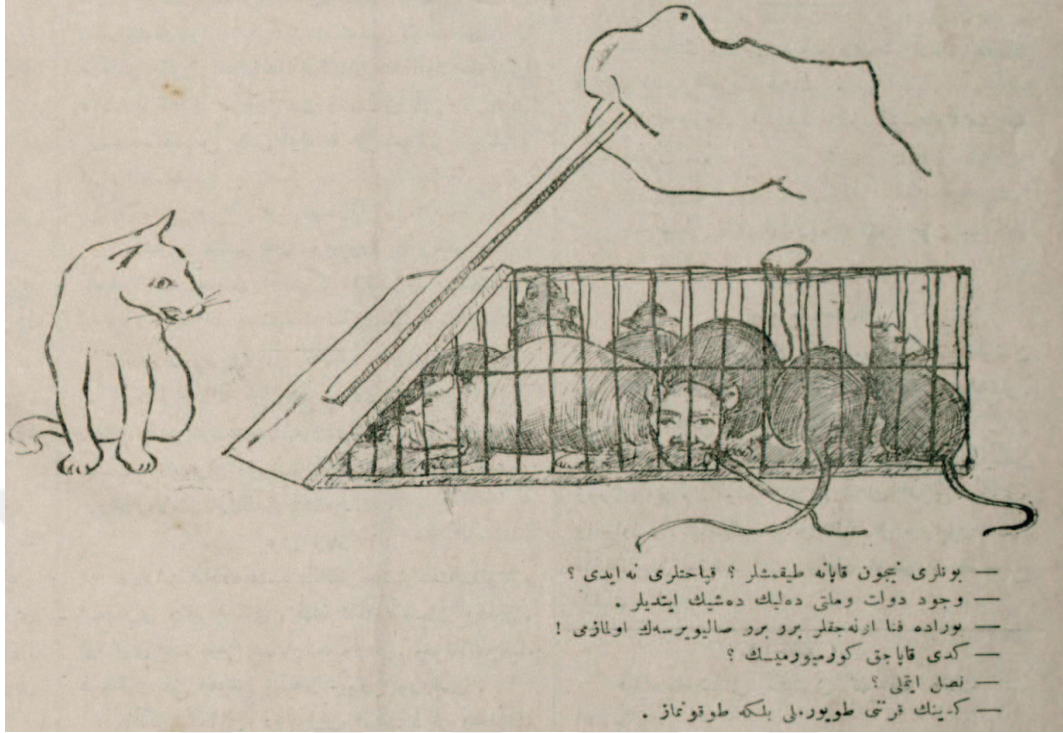 — بونلری نیچون قاپانه طیقمشلر ؟ قباحتلری نه ایدی ؟
— وجود دولت وملتی دەلیك دەشیك ایتدیلر .
— بوراده فنا ازنەجقلر برر برر صالیویرسەك اولمازمی !
— كدی قاپاجق كورمیورمیسك ؟
— نصل ایتملی ؟
— كدینك قرننی طویورملی بلكه طوقونماز .